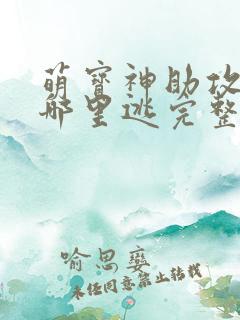 萌宝神助攻
哪里逃完整
喻思娈
未经同意禁止转载